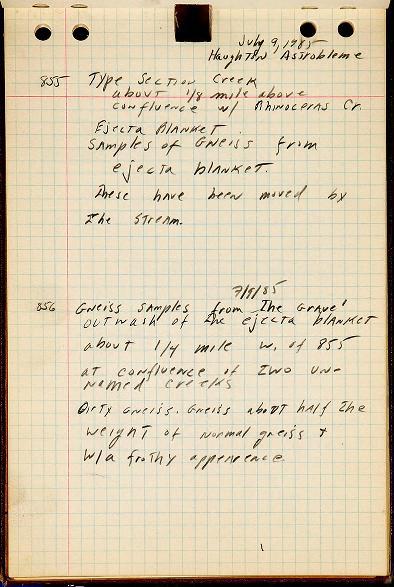 July 9, 1985
Haughton Astrobleme
855 Type Section Creek
about 1/8 mile above
confluence w/ Rhinoceras Cr.
Ejecta Blanket.
Samples of Gneiss from
ejecta blanket.
These have been moved by
the stream.
7/9/85
856 Gneiss samples from the gravel
outwash of the ejecta blanket
about 1/4 mile w. of 855
at confluence of two un-
named creeks
Dirty gneiss. Gneiss about half the
weight of normal gneiss +
w/a frothy apperence